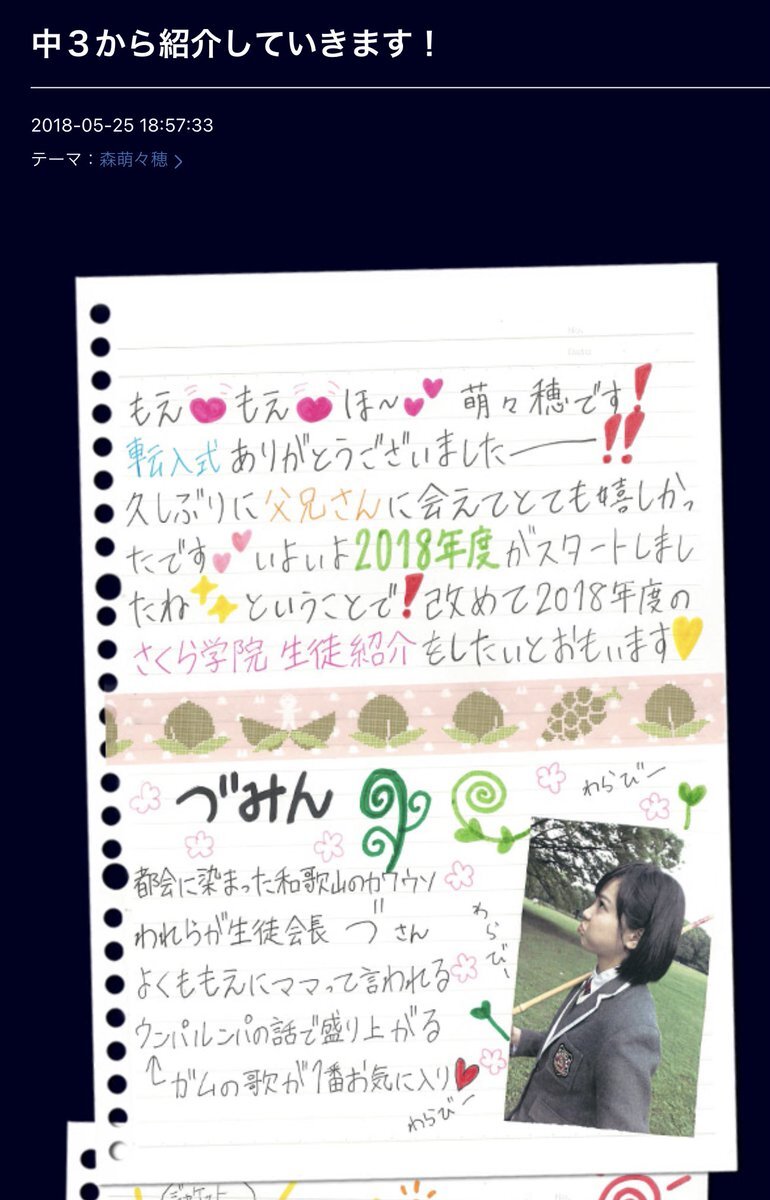 中３から紹介していきます！
2018-05-25 18:57:33
テーマ：森萌々穂
もえもえほ〜 萌々穂です！
転入式ありがとうございましたー!!
久しぶりに父兄さんに会えてとても嬉しかっ
たです いよいよ2018年度がスタートしまし
たね ということで！改めて2018年度の
さくら学院 生徒紹介をしたいとおもいます
づみん
わらびー
都会に染まった和歌山のカワウソ
われらが生徒会長 づさん
よくももえにママって言われる
ウンパルンパの話で盛り上がる
↑ガムの歌が1番お気に入り
わらびー
わらびー
ジャケット